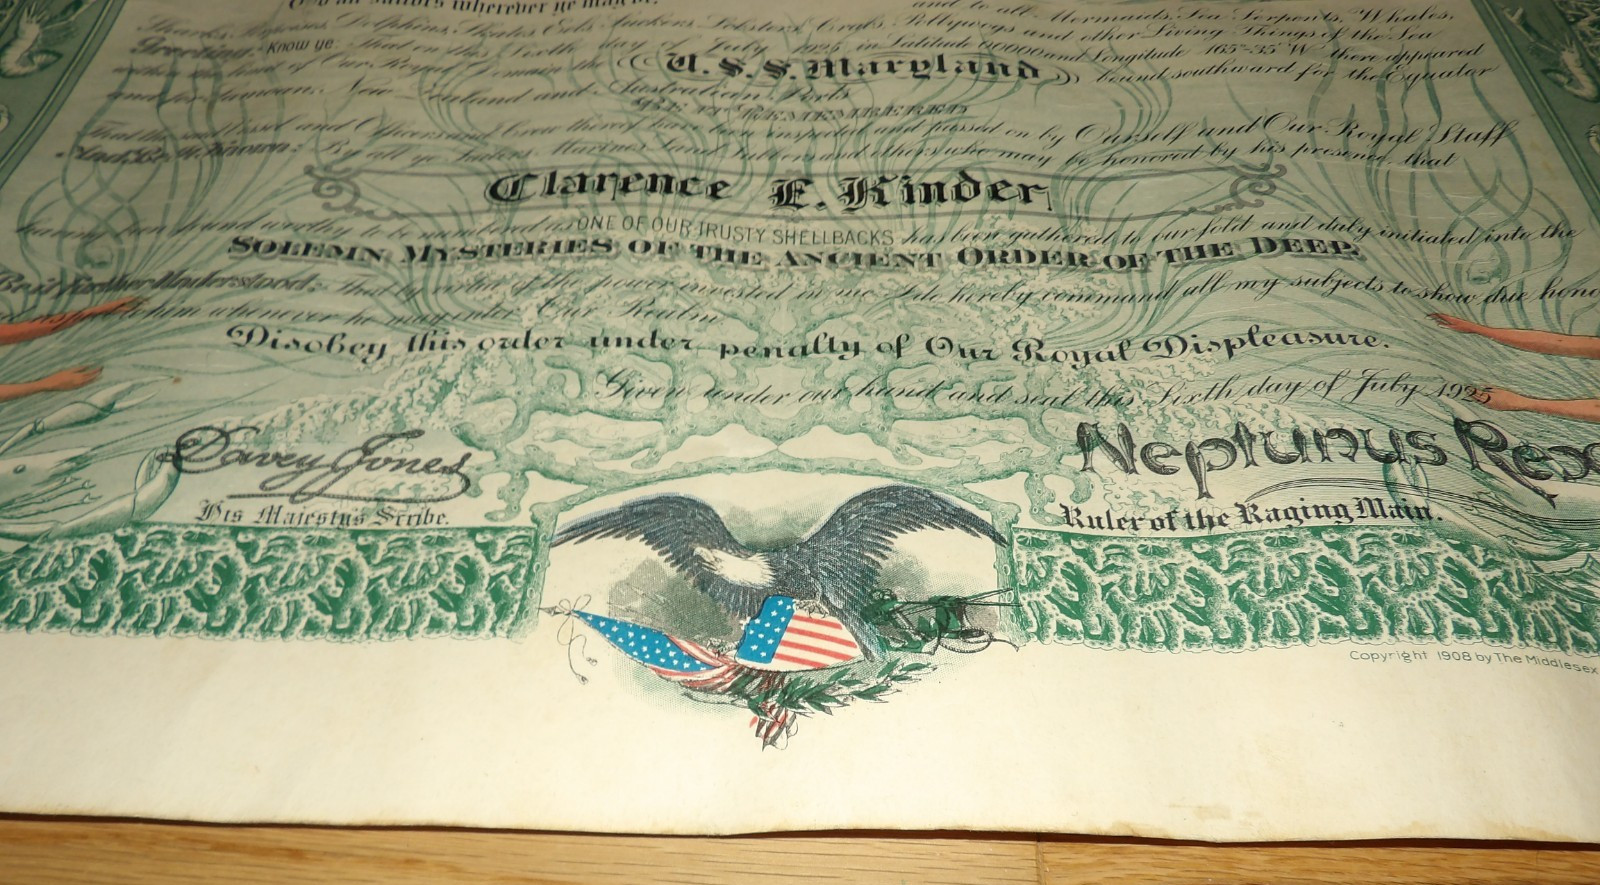 to all Sailors wherever ye may be: and to all Mermaids, Sea Serpents, Whales,
Sharks, Porpoises, Dolphins, Skates, Eels, Suckers, Lobsters, Crabs, Pollywogs and other Living Things of the Sea
Greeting: Know ye: That on this Sixth day of July 1925 in Latitude 00000 and Longitude 165°-35' W there appeared
within the limit of Our Royal Domain the U.S.S. Maryland bound southward for the Equator
and for Samoan, New Zealand and Australian Ports
BE IT REMEMBERED
That the said Vessel and Officers and Crew thereof have been inspected and passed on by Ourself and Our Royal Staff
And Be it Known: By all ye Sailors, Marines, Land Lubbers and others who may be honored by his presence, that
Clarence E. Kinder
having been found worthy to be numbered as ONE OF OUR TRUSTY SHELLBACKS has been gathered to our fold and duly initiated into the
SOLEMN MYSTERIES OF THE ANCIENT ORDER OF THE DEEP.
Be it Further Understood: That by virtue of the power invested in me I do hereby command all my subjects to show due hono
to him whenever he may enter Our Realm
Disobey this order under penalty of Our Royal Displeasure.
Given under our hand and seal this Sixth day of July 1925
Davey Jones
His Majesty's Scribe.
Neptunus Rex
Ruler of the Raging Main.
Copyright 1908 by The Middlesex